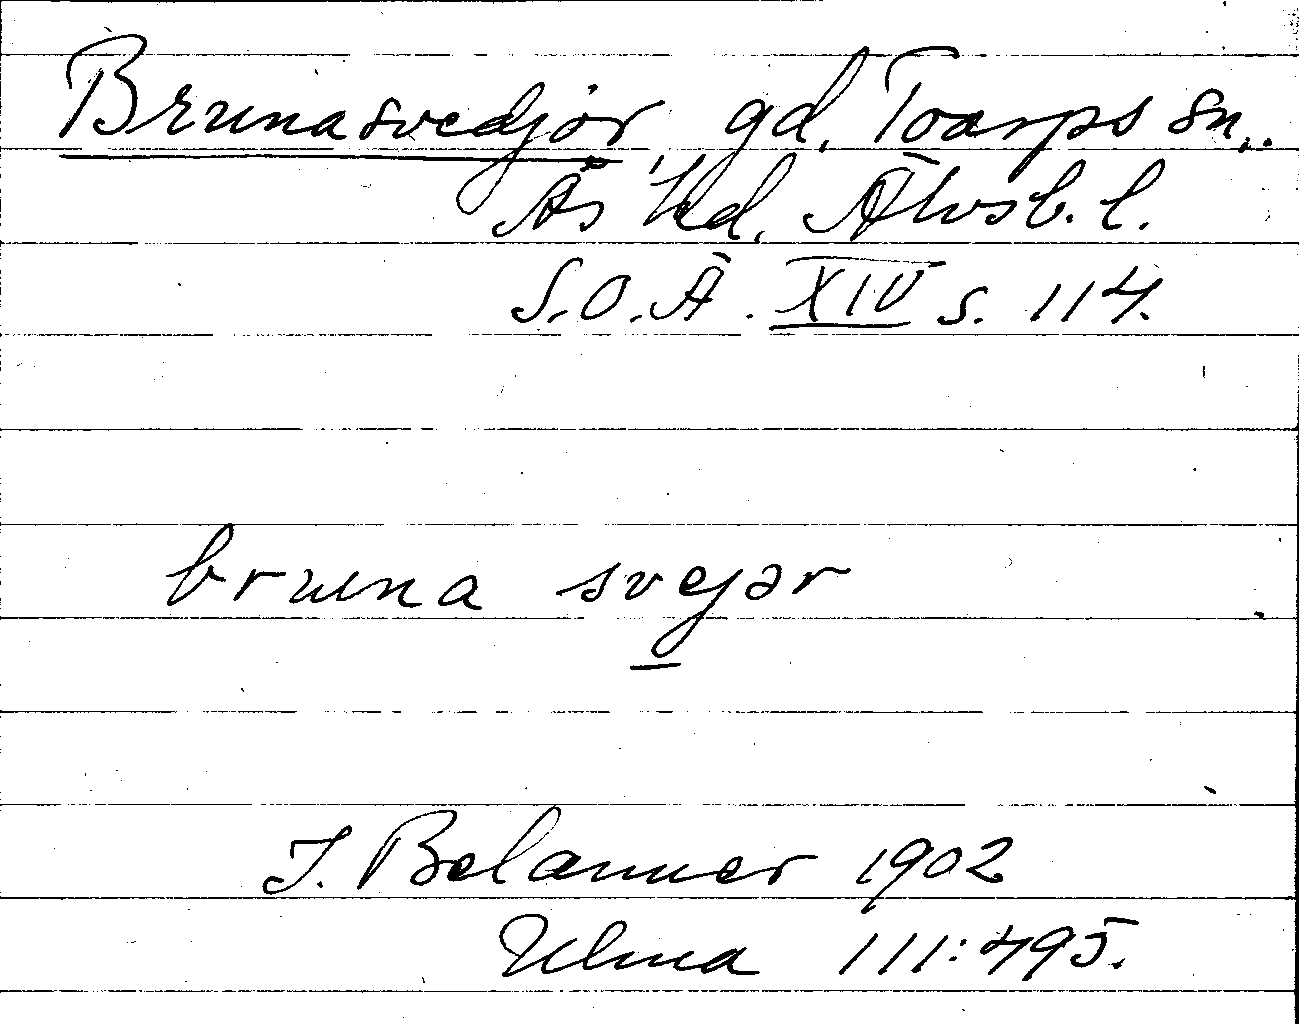 Brunasvedjor, gd, Toarps sn,.
Ås hd, Älvsb. l.
S.O.Ä. XIV s. 114.
bruna svejər
J. Belanner 1902
Ulma 111:495.